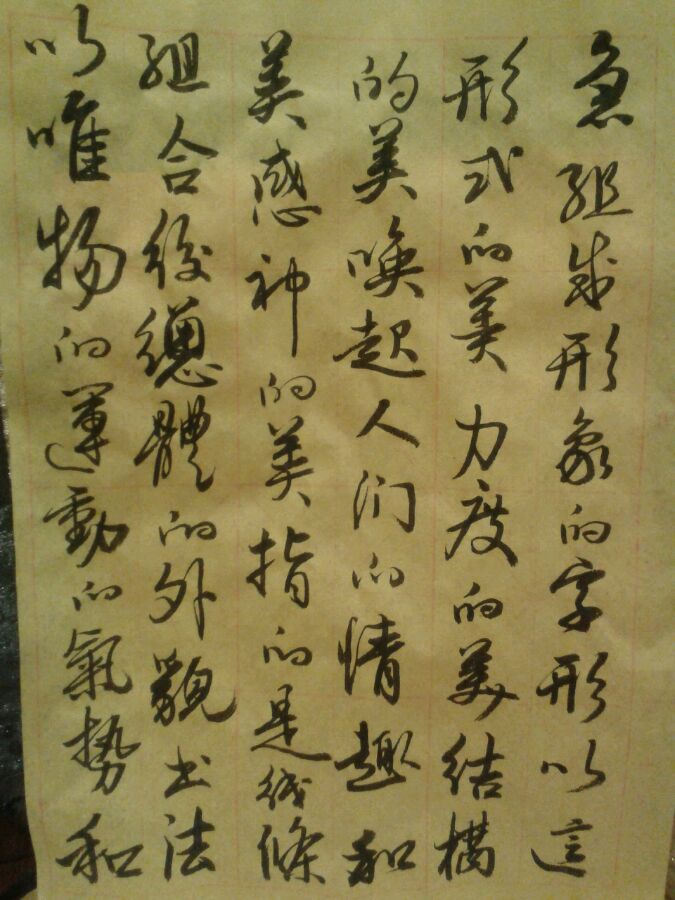 急組成形象的字形以這
形式的美力度的美結構
的美喚起人们的情趣和
美感神的美指的是线條
組合後總體的外貌书法
以唯物的運動的氣势和